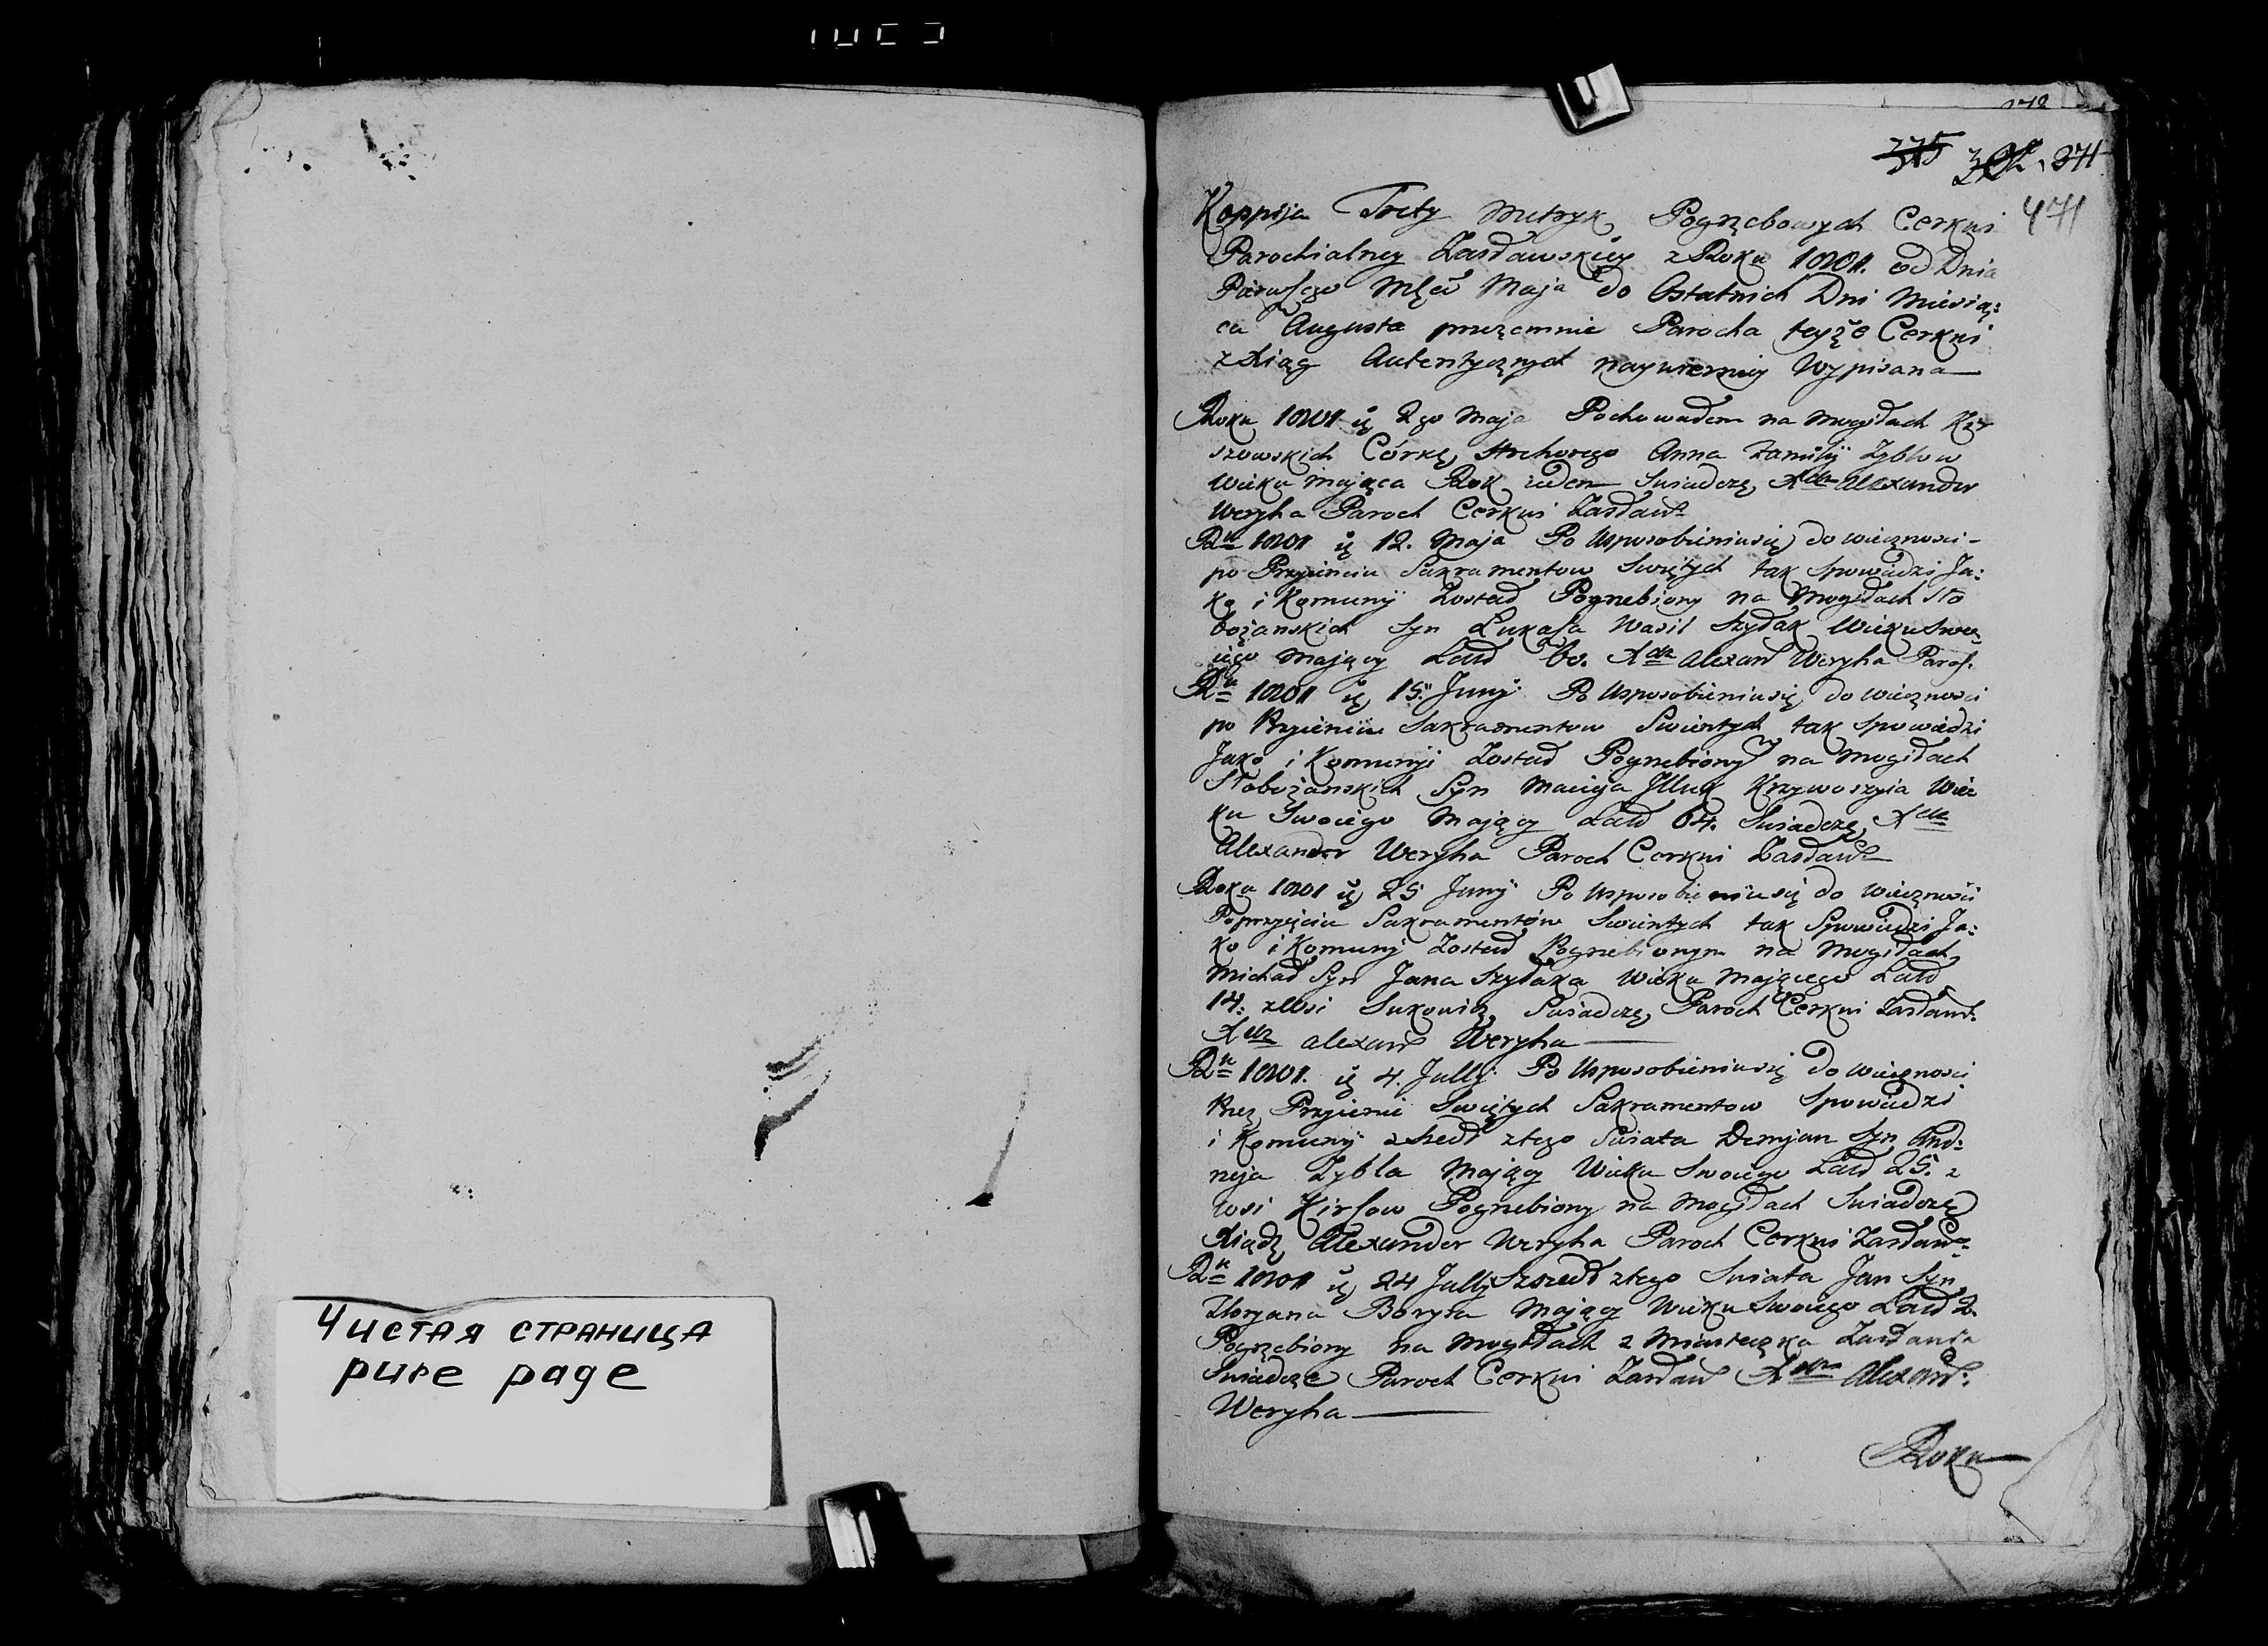 Чистая страница
pure page
371
471
Koppija Trety Metryk Pogrzebowych Cerkwi
Parochialney Zasławskiey z Roku 1801. od Dnia
Maja do Ostatnich Dni Miesią:
ca Augusta przezemnie Parocha teyże Cerkwi
z Xiąg Autentycznych naywierniey Wypisana
Roku 1801 Maja Pochowałem na mogiłach
szowskich Córkę Anna z familij Zyblow
wieku mająca Rok ieden Swiadczę Xdz Alexander
Weryha Paroch Cerkwi Zasław
Rku 1801 12. Maja Po Usposobieniu się do wieczności
po Przyięciu Sakramentow Swiętych tak Spowiedzi Ja:
ko i Komunij Został Pogrzebiony na Mogiłach Sło
bożanskich Syn Łukasza Wasil Szydak Wieku Swo
iego Maiący Lat 60. Xdz Alexan Weryha Paro.
Rku 1801 15. Junij Po Usposobieniu się do wieczności
po Przyięciu Sakramentow Swientych tak Spowiedzi
Jako i Komunyi Został Pogrzebiony na Mogiłach
Słobożanskich Syn Macieja Illuk Krzywoszyia Wie
ku Swoiego Mający Lat 64. Swiadczę Xdz
Alexander Weryha Paroch Cerkwi Zasław
Roku 1801 25 Junij Po Usposobieniu się do wieczności
Po przyięciu Sakramentów Swientych tak Spowiedzi Ja:
ko i Komunij Został Pogrzebionym na Mogiłach
Michał Syn Jana Szydaka Wieku Mającego Lat
14: z Wsi Swiadczę Paroch Cerkwi Zasław.
Xdz Alexan Weryha
Rku 1801. 4. Julij Po Usposobieniu się do wieczności
Przez Przyięcie Swiętych Sakramentow Spowiedzi
i Komunij zszedł z tego Swiata Demjan Syn And:
reja Zybla Mający Wieku Swoiego Lat 25. z
wsi Pogrzebiony na Mogiłach Swiadczę
Xiądz Alexander Weryha Paroch Cerkwi Zasław
Rku 1801 24 Julij Zszedł z tego Swiata Jan Syn
Floryana Boryta Mający Wieku Swoiego Lat
Pogrzebiony na Mogiłach z Miasteczka Zasławia
Swiadcze Paroch Cerkwi Zasław Xdz Alexan.
Weryha
Roku